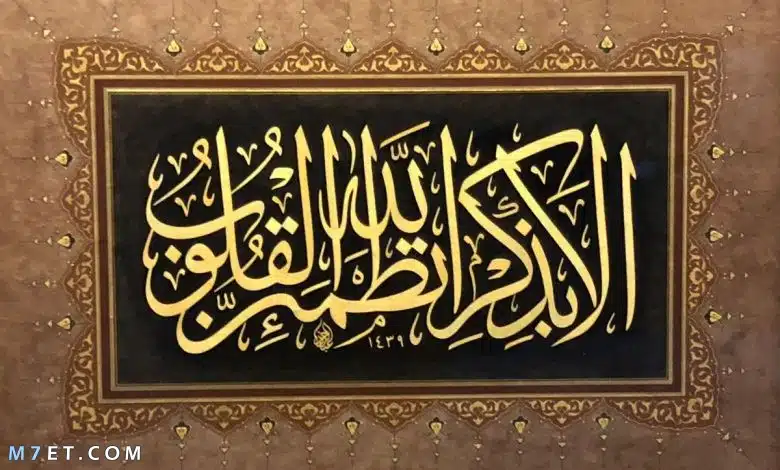 ألا بذكر الله تطمئن القلوب
١٤٣٩
M7ET.COM